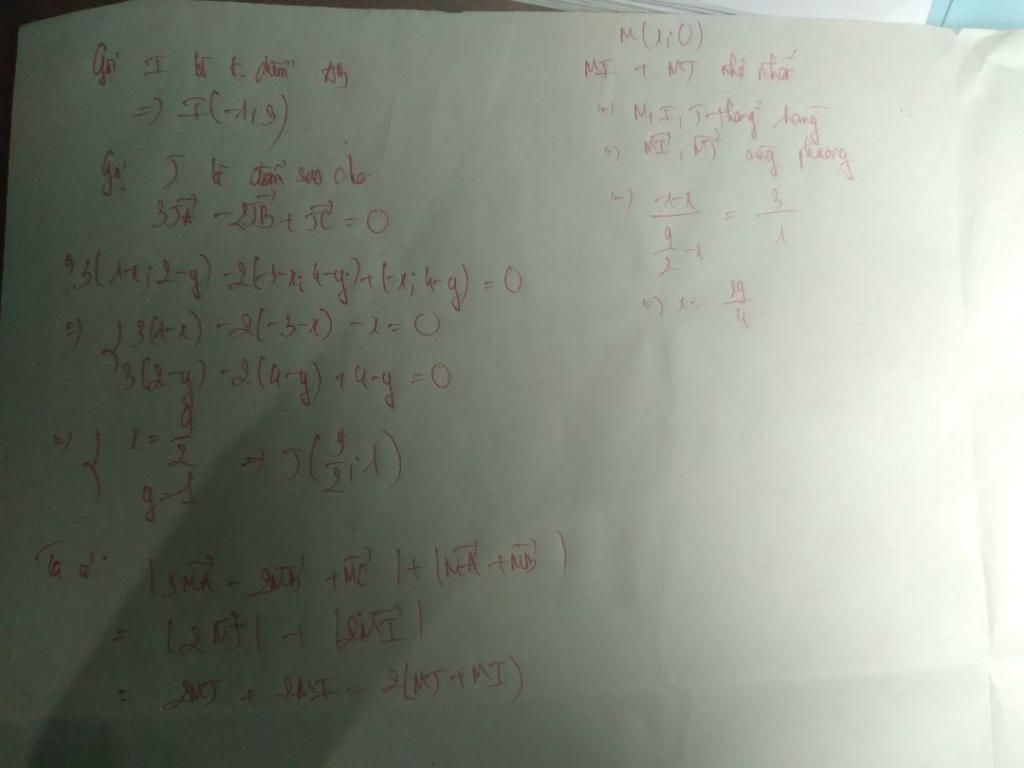 Gọi I là t. điểm AB
=> I(-1;3)
Gọi J là điểm sao cho
3JA - 2JB + JC = 0
3(1-x;2-y) -2(-3-x;4-y)+(-x;4-y) = 0
=> { 3(1-x) -2(-3-x) -x = 0
3(2-y) -2(4-y) +4-y = 0
=> { x = 9/2
y=1 => J(9/2;1)
Ta có: |3MA - 2MB + MC| + |MA + MB|
= |2MJ| + |2MI|
= 2MJ + 2MI = 2(MJ + MI)
M(x;0)
MI + MJ nhỏ nhất
<=> M, I, J thẳng hàng
<=> MI, MJ cùng phương
<=> (-1-x)/(9/2 - x) = 3/1
<=> x = 29/4